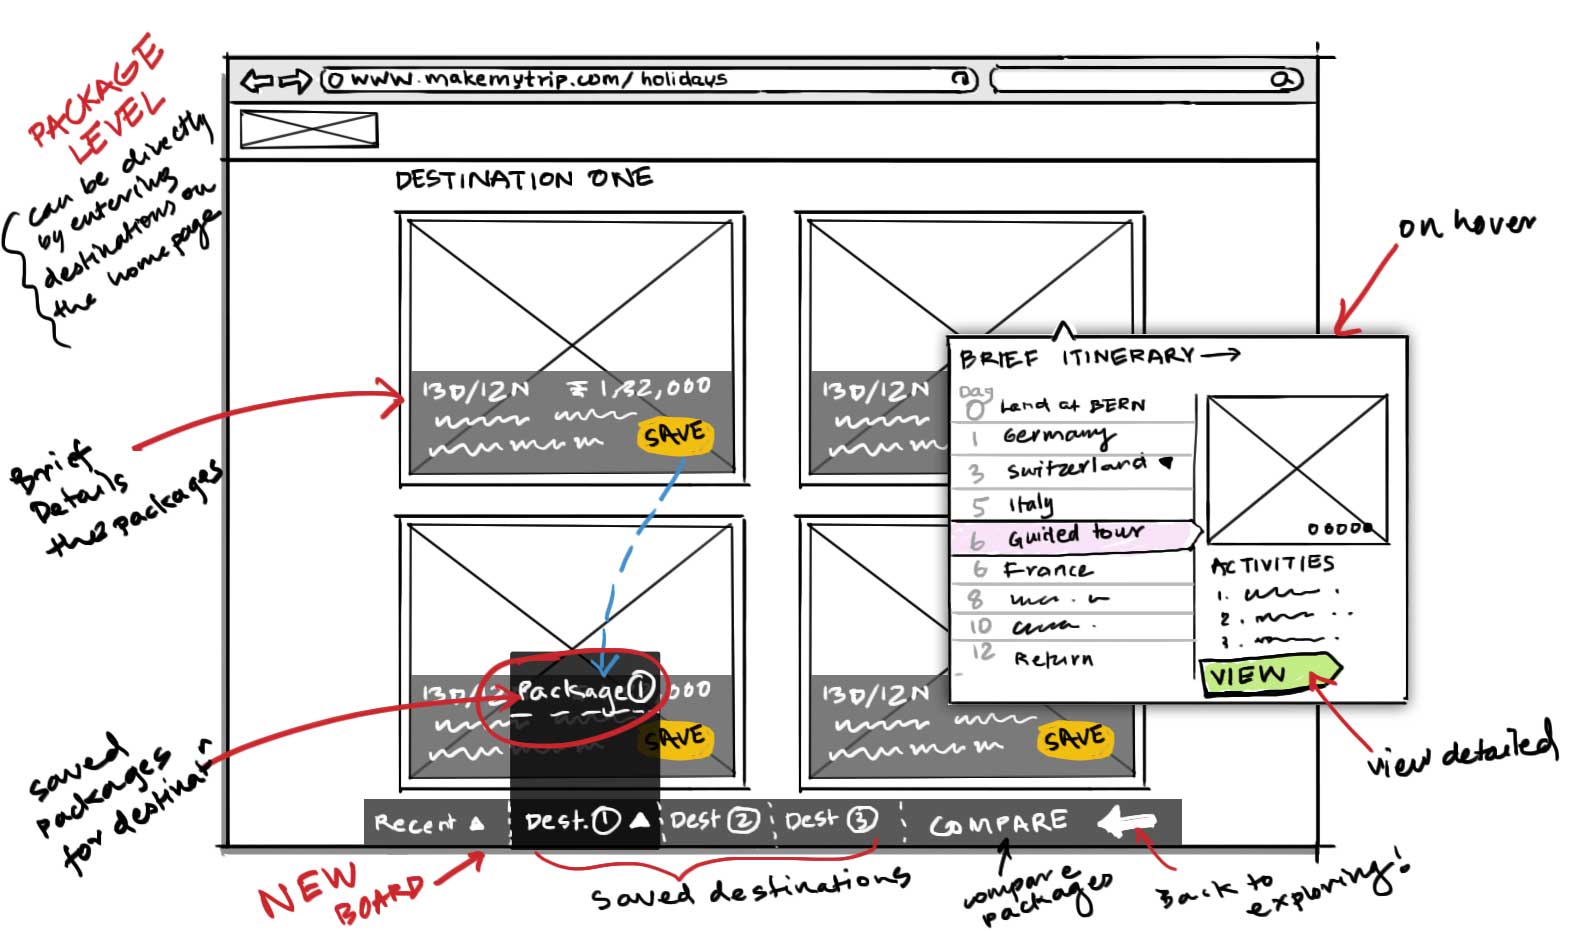 PACKAGE
LEVEL
can be directly
by entering
destinations on
the homepage
www.makemytrip.com/holidays
DESTINATION ONE
on hover
13D/12N ₹ 1,32,000
SAVE
13D/12N
BRIEF ITINERARY →
Day
0 Land at BERN
1 Germany
3 Switzerland
5 Italy
6 Guided tour
6 France
8
10
12 Return
ACTIVITIES
1.
2.
3.
VIEW
Brief
Details
the packages
13D/12 000
Package 1
SAVE
13D/12N
SAVE
view detailed
saved
packages
for destinatn
Recent ▲ Dest. 1 ▲ Dest 2 Dest 3 COMPARE
NEW
BOARD
saved destinations
compare
packages
Back to
exploring!